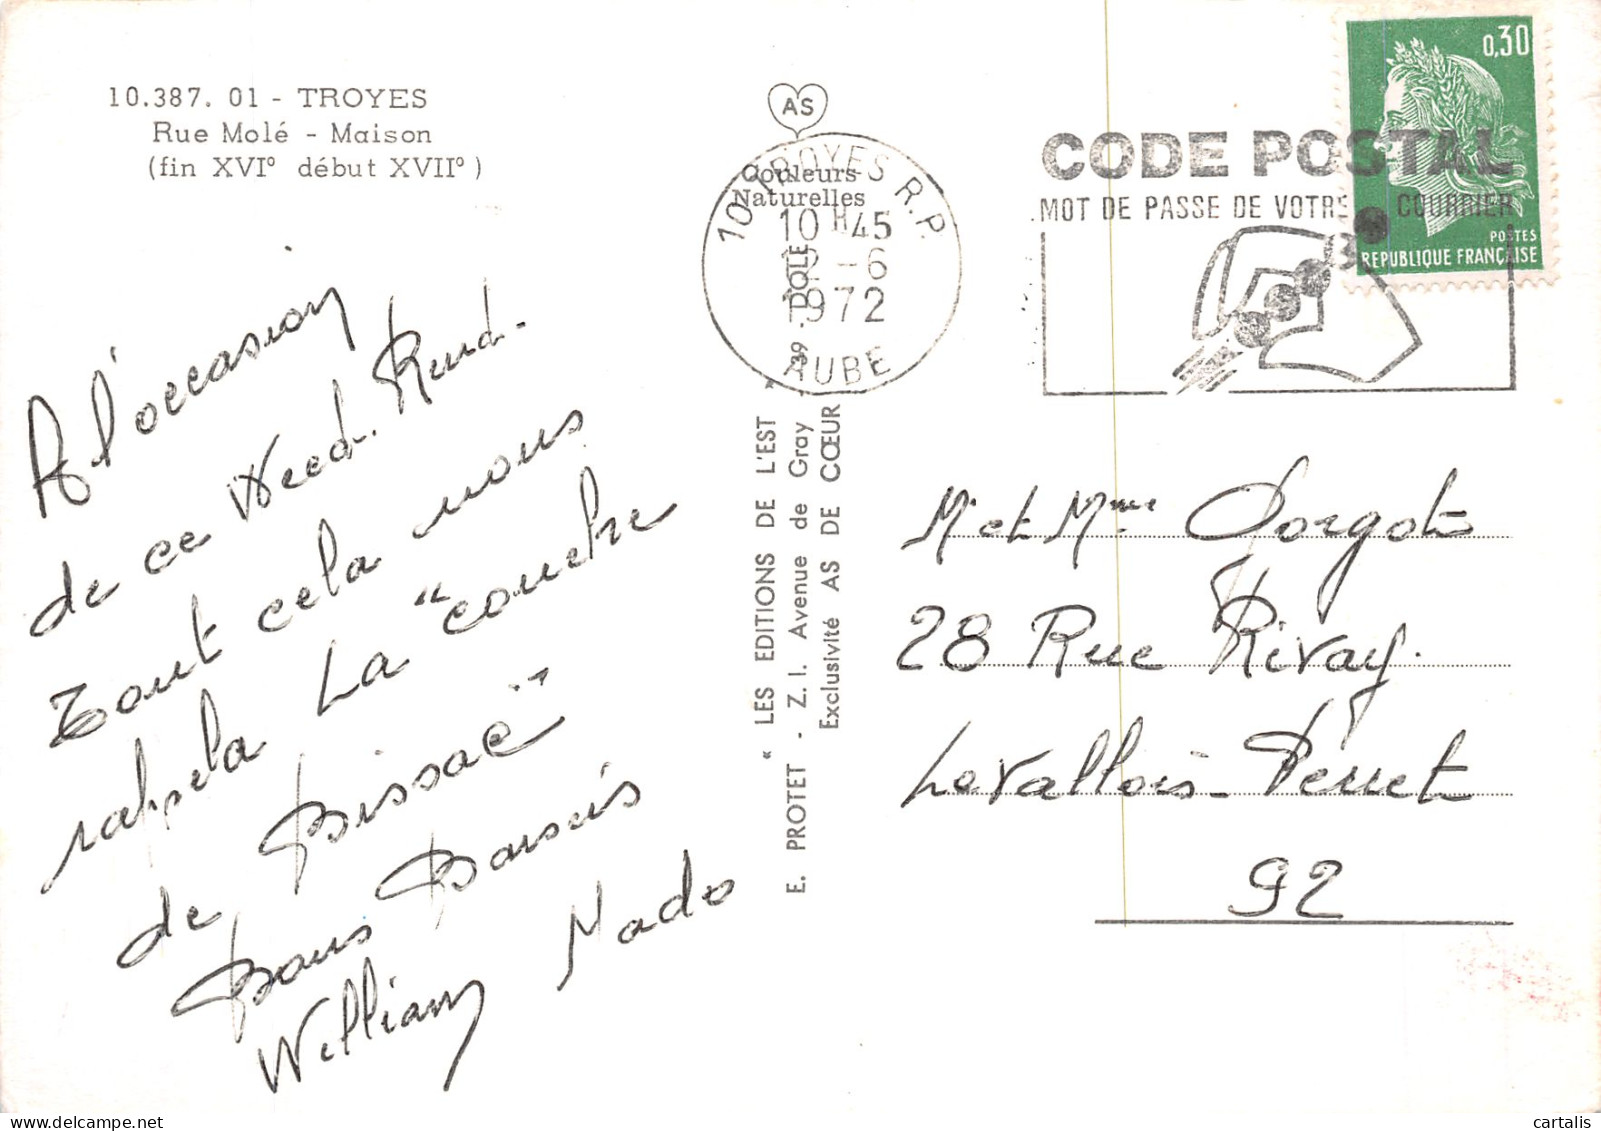 10.387. 01 - TROYES
Rue Molé - Maison
(fin XVI° début XVII°)
A l'occasion
de ce Weed. Rund.
Tout cela nous
rappela La "couche
de Bissac"
Bons Baisers
William Nado
AS
Couleurs
Naturelles
10 TROYES R.P.
10 H 45
12-6
1972
AUBE
"LES EDITIONS DE L'EST"
E. PROTET - Z. I. Avenue de Gray - 39 - DOLE
Exclusivité AS DE CŒUR
CODE POSTAL
MOT DE PASSE DE VOTRE COURRIER
0,30
POSTES
REPUBLIQUE FRANÇAISE
Mr et Mme Dorgots
28 Rue Rivay.
Levallois-Perret
92
cartalis
www.delcampe.net